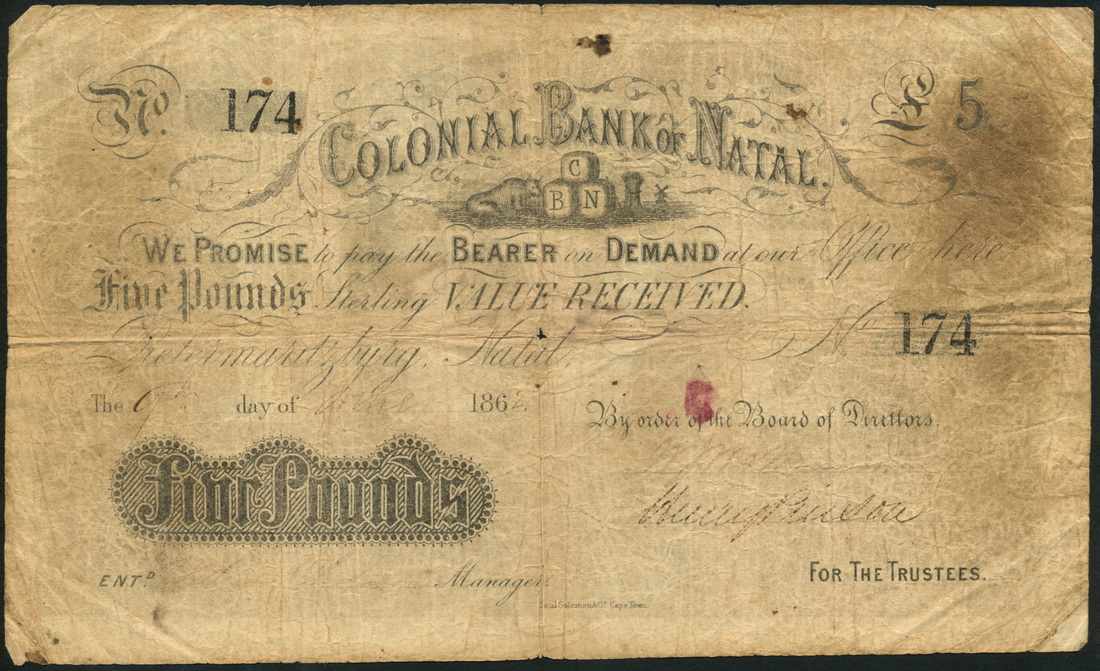 No. 174
£ 5
COLONIAL BANK OF NATAL.
C
B N
WE PROMISE to pay the BEARER on DEMAND at our Office here
Five Pounds Sterling VALUE RECEIVED.
Pietermaritzburg, Natal,
No 174
The day of 186
By order of the Board of Directors.
Five Pounds
Henry
ENT.D
Manager.
FOR THE TRUSTEES.
Saul Solomon & Co. Cape Town.